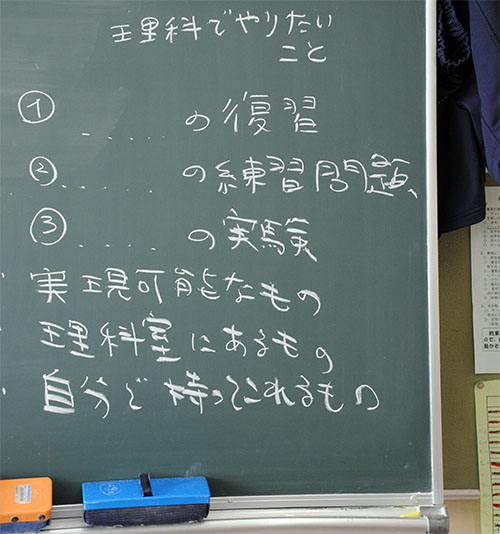 理科でやりたい
こと
① ..... の復習
② ..... の練習問題
③ ..... の実験
実現可能なもの
理科室にあるもの
自分で持ってこれるもの